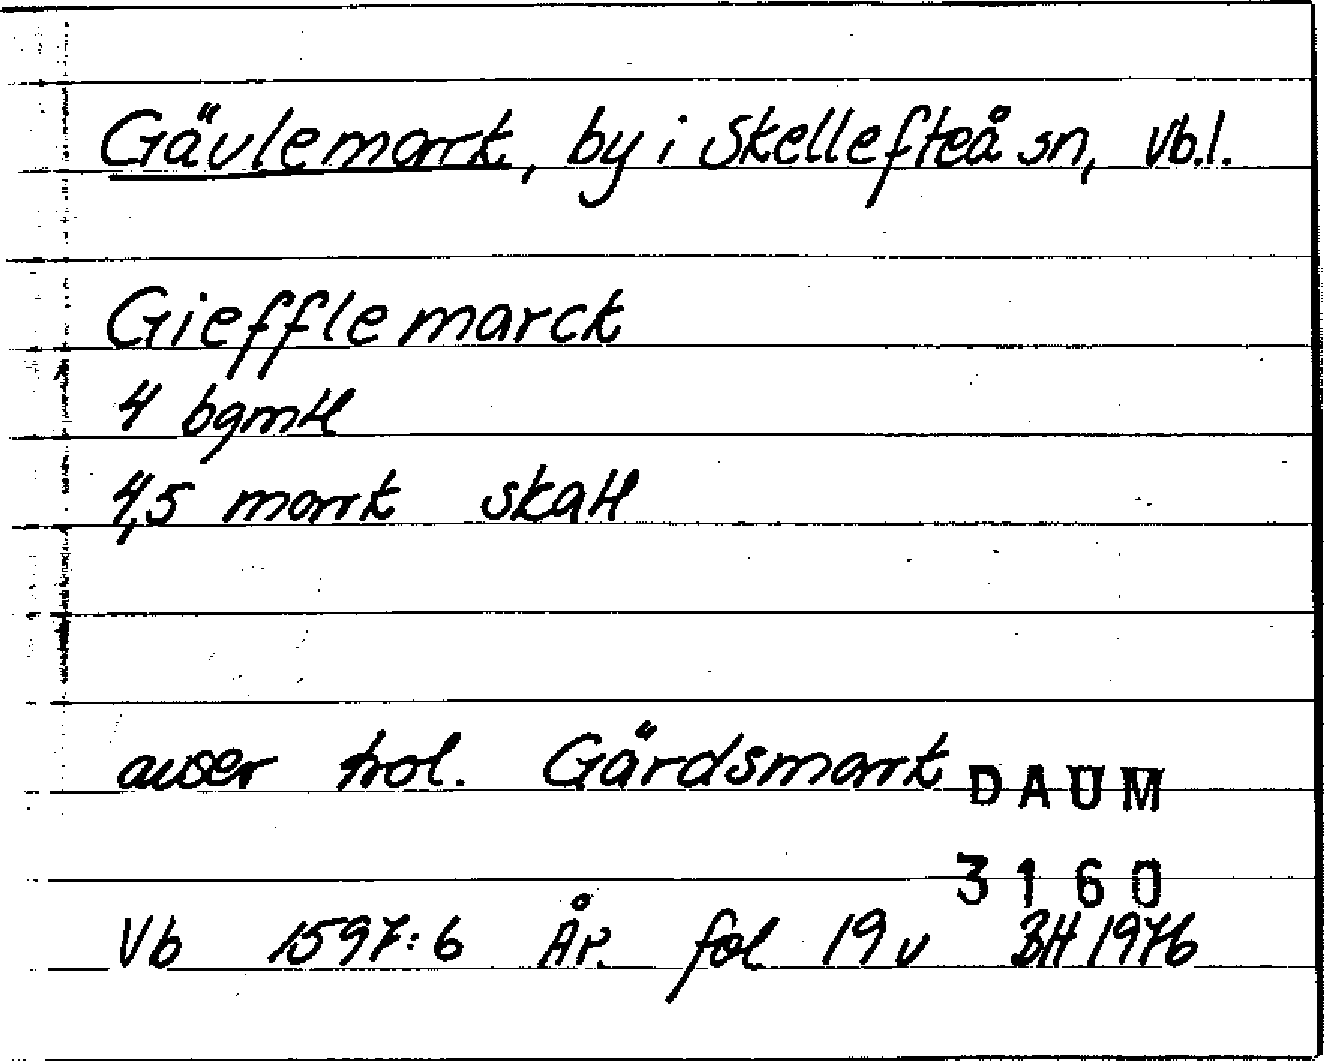 Gävlemark, by i Skellefteå sn, Vb.l.
Giefflemarck
4 bgmtl
4,5 mark skatt
avser trol. Gärdsmark
DAUM
3160
Vb 1597:6 År. fol 19 v BH 1976